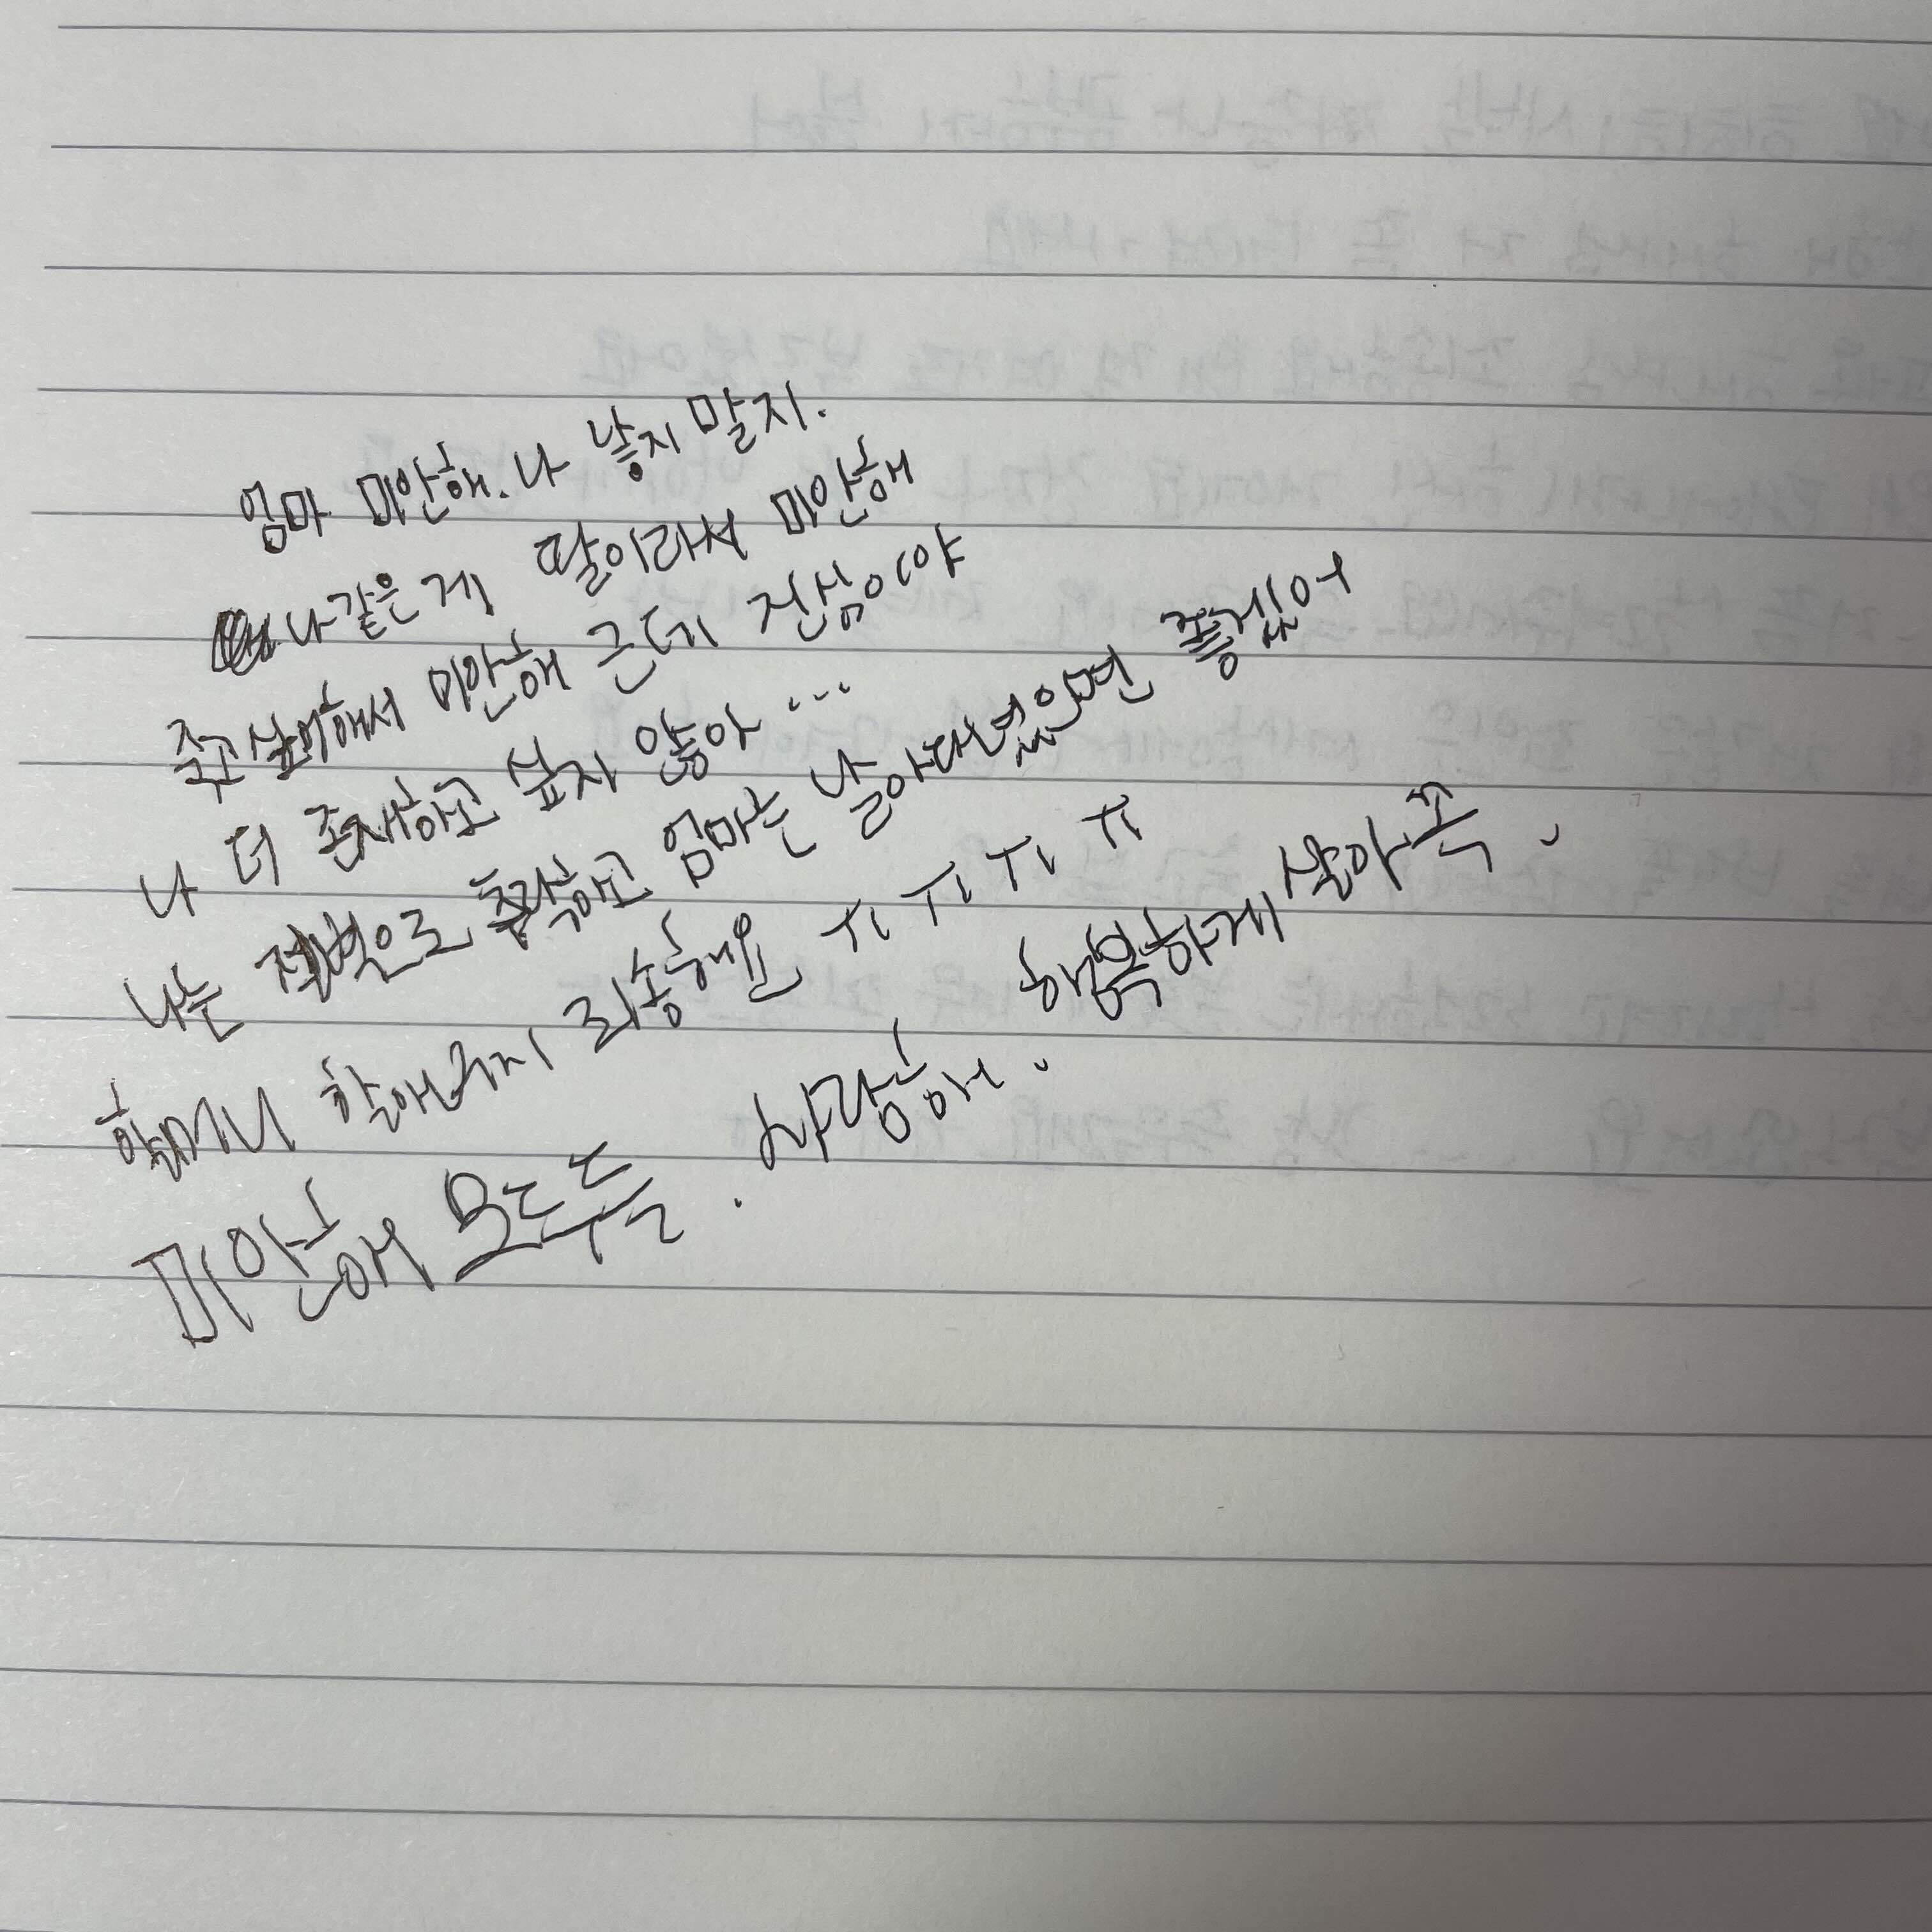 엄마 미안해. 나 낳지 말지.
나같은 게 딸이라서 미안해
죽고 싶어해서 미안해 근데 진심이야
나 더 존재하고 싶지 않아 ...
나는 으로 추락하고 엄마는 날아다녔으면 좋겠어
할머니 할아버지 죄송해요 ㅠㅠㅠㅠ
미안해 모두들. 사랑해. 행복하게 살아 꼭.